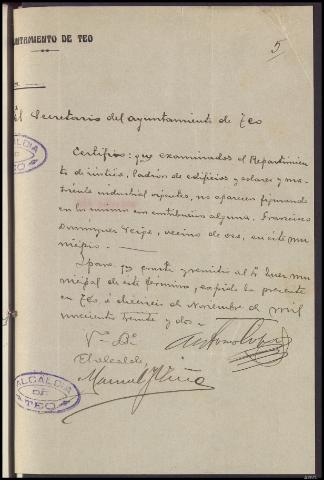 AYUNTAMIENTO DE TEO
5
El Secretario del ayuntamiento de Teo
Certifico: que examinados el Repartimien
to de rústica, padrón de edificios y solares y ma
trícula industrial vigentes, no aparece figurando
en la misma con contribución alguna, Francisco
Domínguez vecino de en este mu
nicipio.
Y para que conste y remitir al Sr Juez mu
nicipal de este término, expido la presente
en Teo, a de Noviembre de mil
novecientos treinta y dos.
Vº Bº
El alcalde,
Manuel
ALCALDIA
DE
TEO
ALCALDIA
DE
TEO